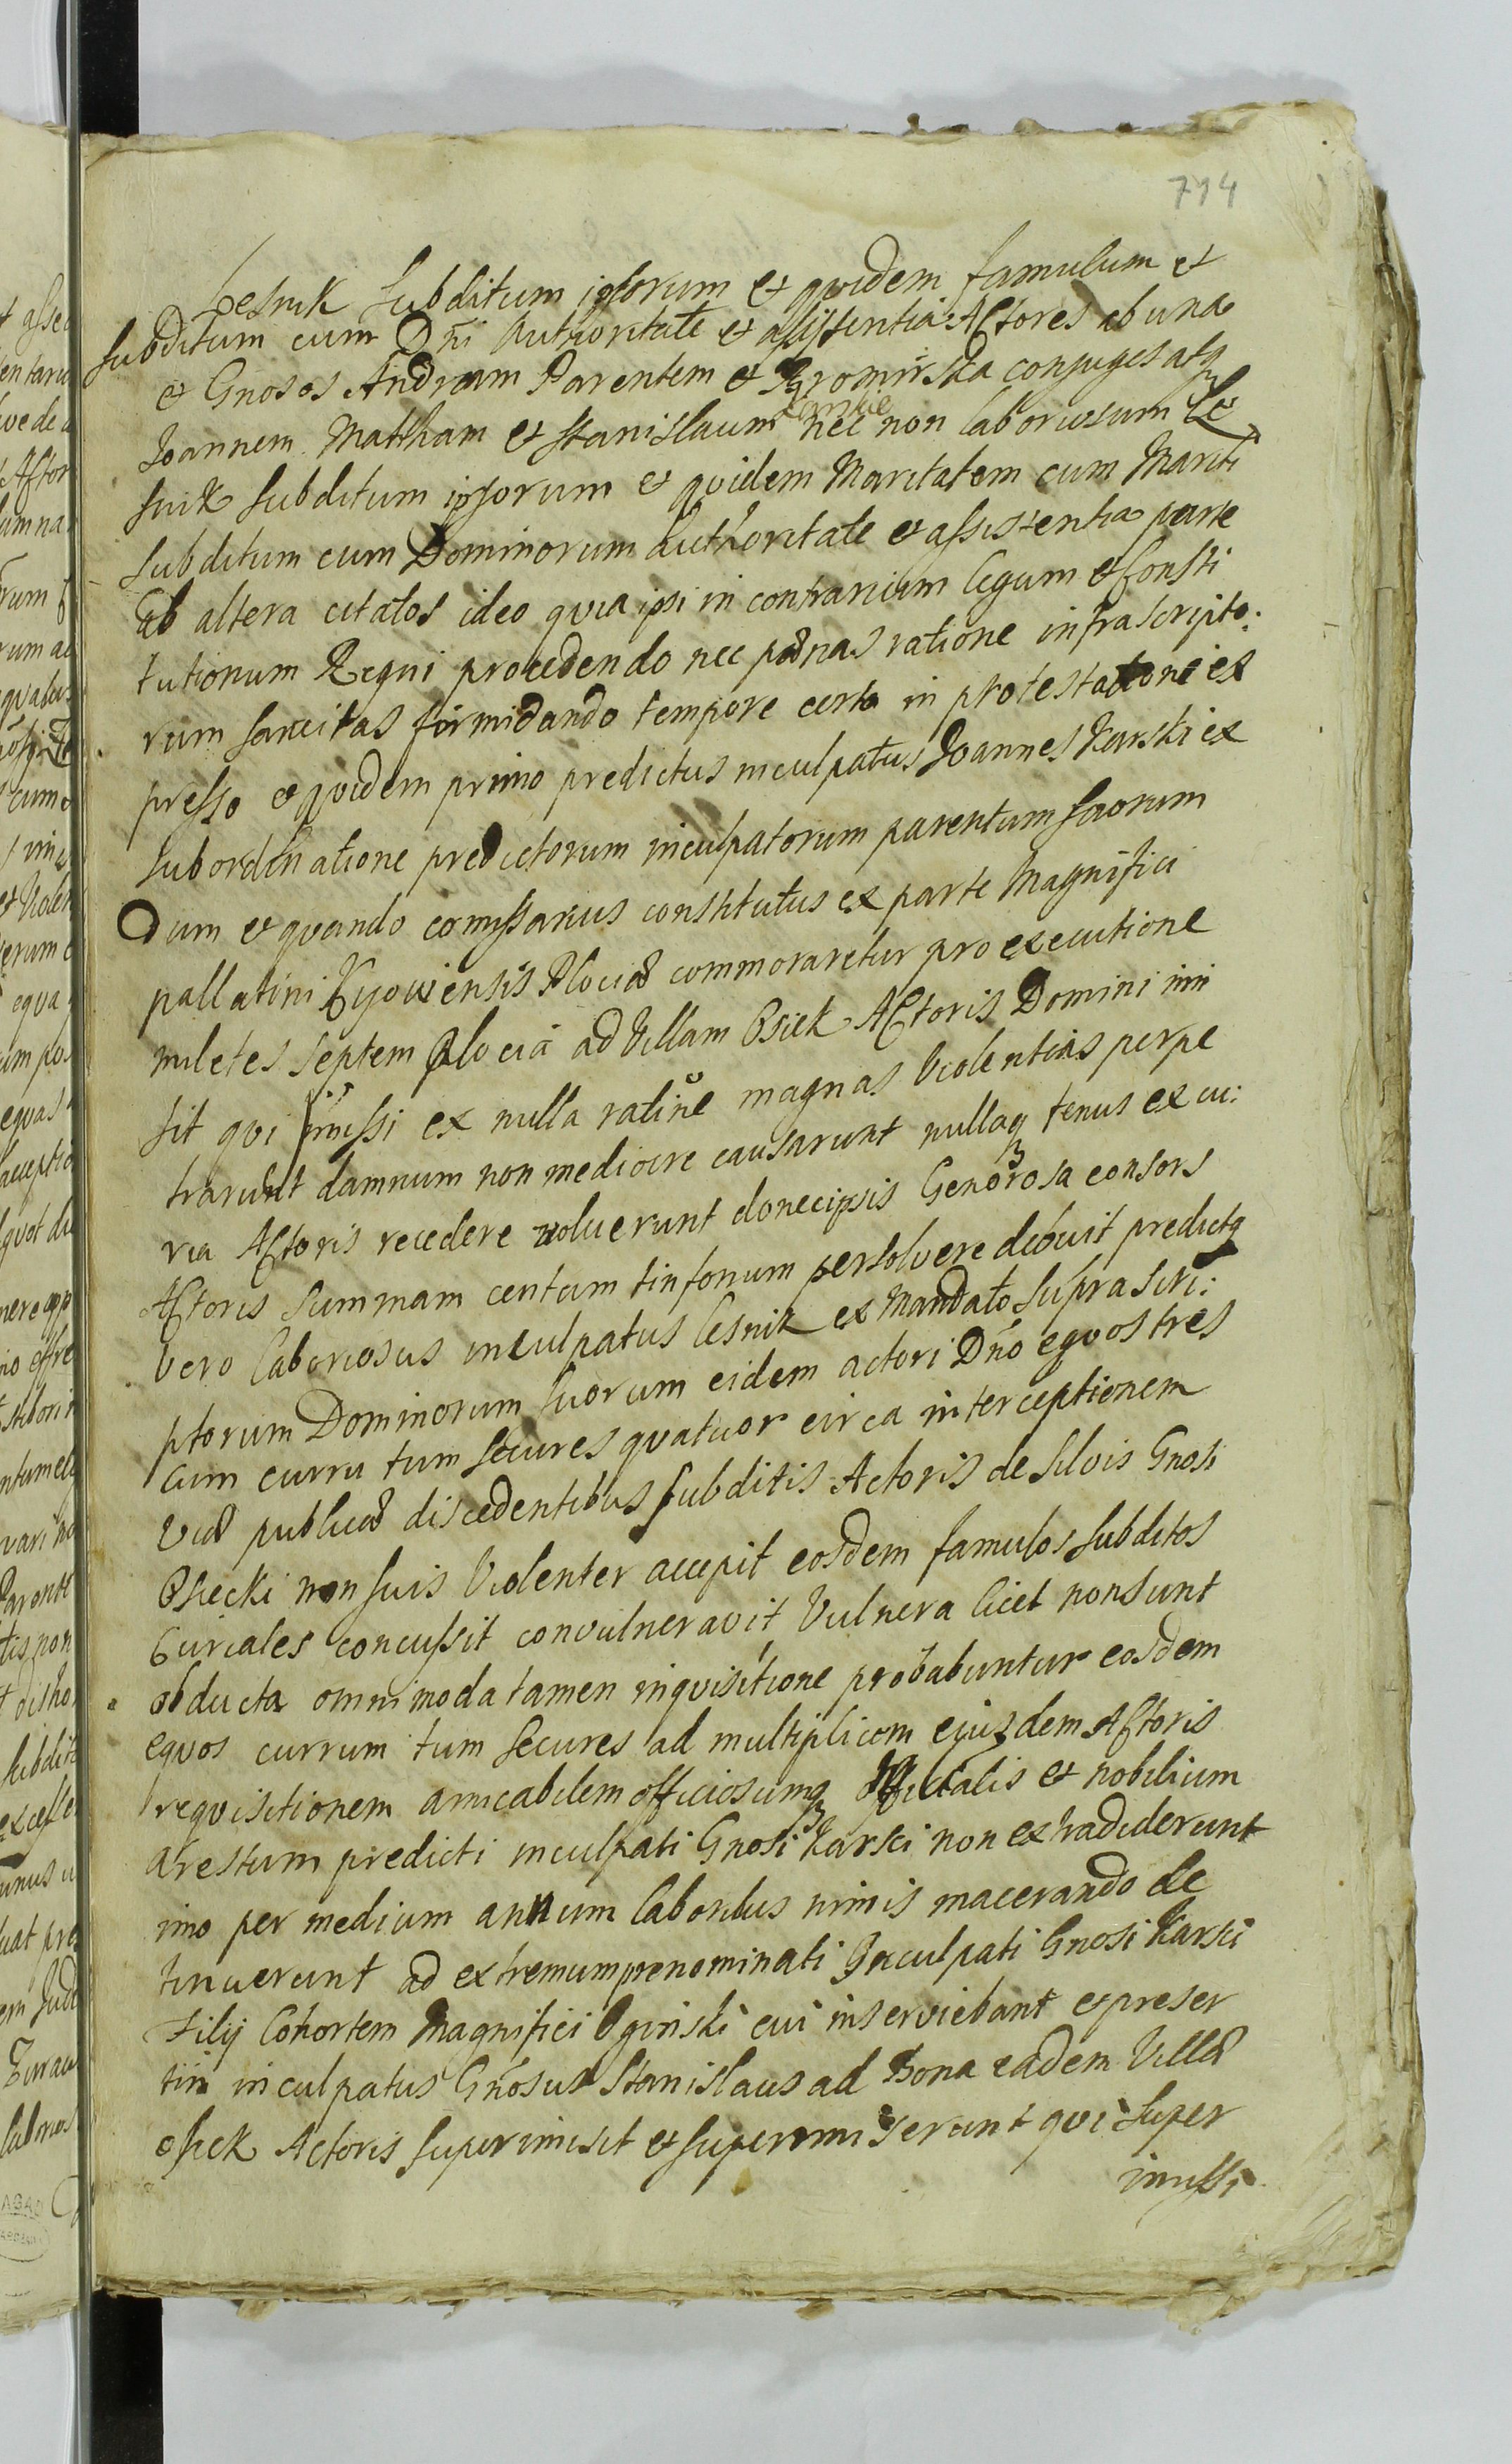 794
Lesnik subditum ipsorum et quidem famulum et
subditum cum Dni Authoritate et assistentia Actores ab una
et Gnosos Andream Parentem et Bromirska conjuges atq
Joannem Matham et Stanislaum nec non laboriosum Le
snik subditum ipsorum et quidem Maritatem cum Mariti
subditum cum Dominorum Authoritate et assistentia parte
ab altera citatos ideo quia ipsi in contrarium legum et Consti
tutionum Regni procedendo nec pœnas ratione infrascripto:
rum sancitas formidando tempore certo in protestatione ex
presso et quidem primo predictus inculpatus Joannes Karski ex
subordinatione predictorum inculpatorum parentum suorum
Dum et quando comissarius constitutus ex parte Magnifici
pallatini Kyoviensis Plociæ commoraretur pro executione
miletes septem Plocia ad Villam Osiek Actoris Domini imi
sit qui imissi ex nulla ratine magnas Violentias perpe
trarunt damnum non mediocre causarunt nullaq tenus ex cu:
ria Actoris recedere voluerunt donec ipsis Generosa consors
Actoris summam centum tinfonum persolvere debuit predictq
vero laboriosus inculpatus Lesnik ex Mandato supra scri:
ptorum Dominorum suorum eidem actori Dno equos tres
cum curru tum secures quatuor circa interceptionem
viæ publicæ discedentibus subditis Actoris de silvis Gnosi
Osiecki non suis Violenter accepit eosdem famulos subditos
Curiales concussit convulneravit Vulnera licet non sunt
obducta omnimoda tamen inquisitione probabuntur eosdem
equos currum tum secures ad multiplicem ejusdem Actoris
requisitionem amicabilem officiosumq Officialis et nobilium
arestum predicti inculpati Gnosi Karski non extradiderunt
imo per medium annum laboribus nimis macerando de
tinuerunt ad extremum prenominati Inculpati Gnosi Karski
Filij Cohortem Magnifici Oginski cui inserviebant et preser
tim inculpatus Gnosus Stanislaus ad Bona eadem Villæ
osiek Actoris superimisit et superimiserunt qui super
imissi